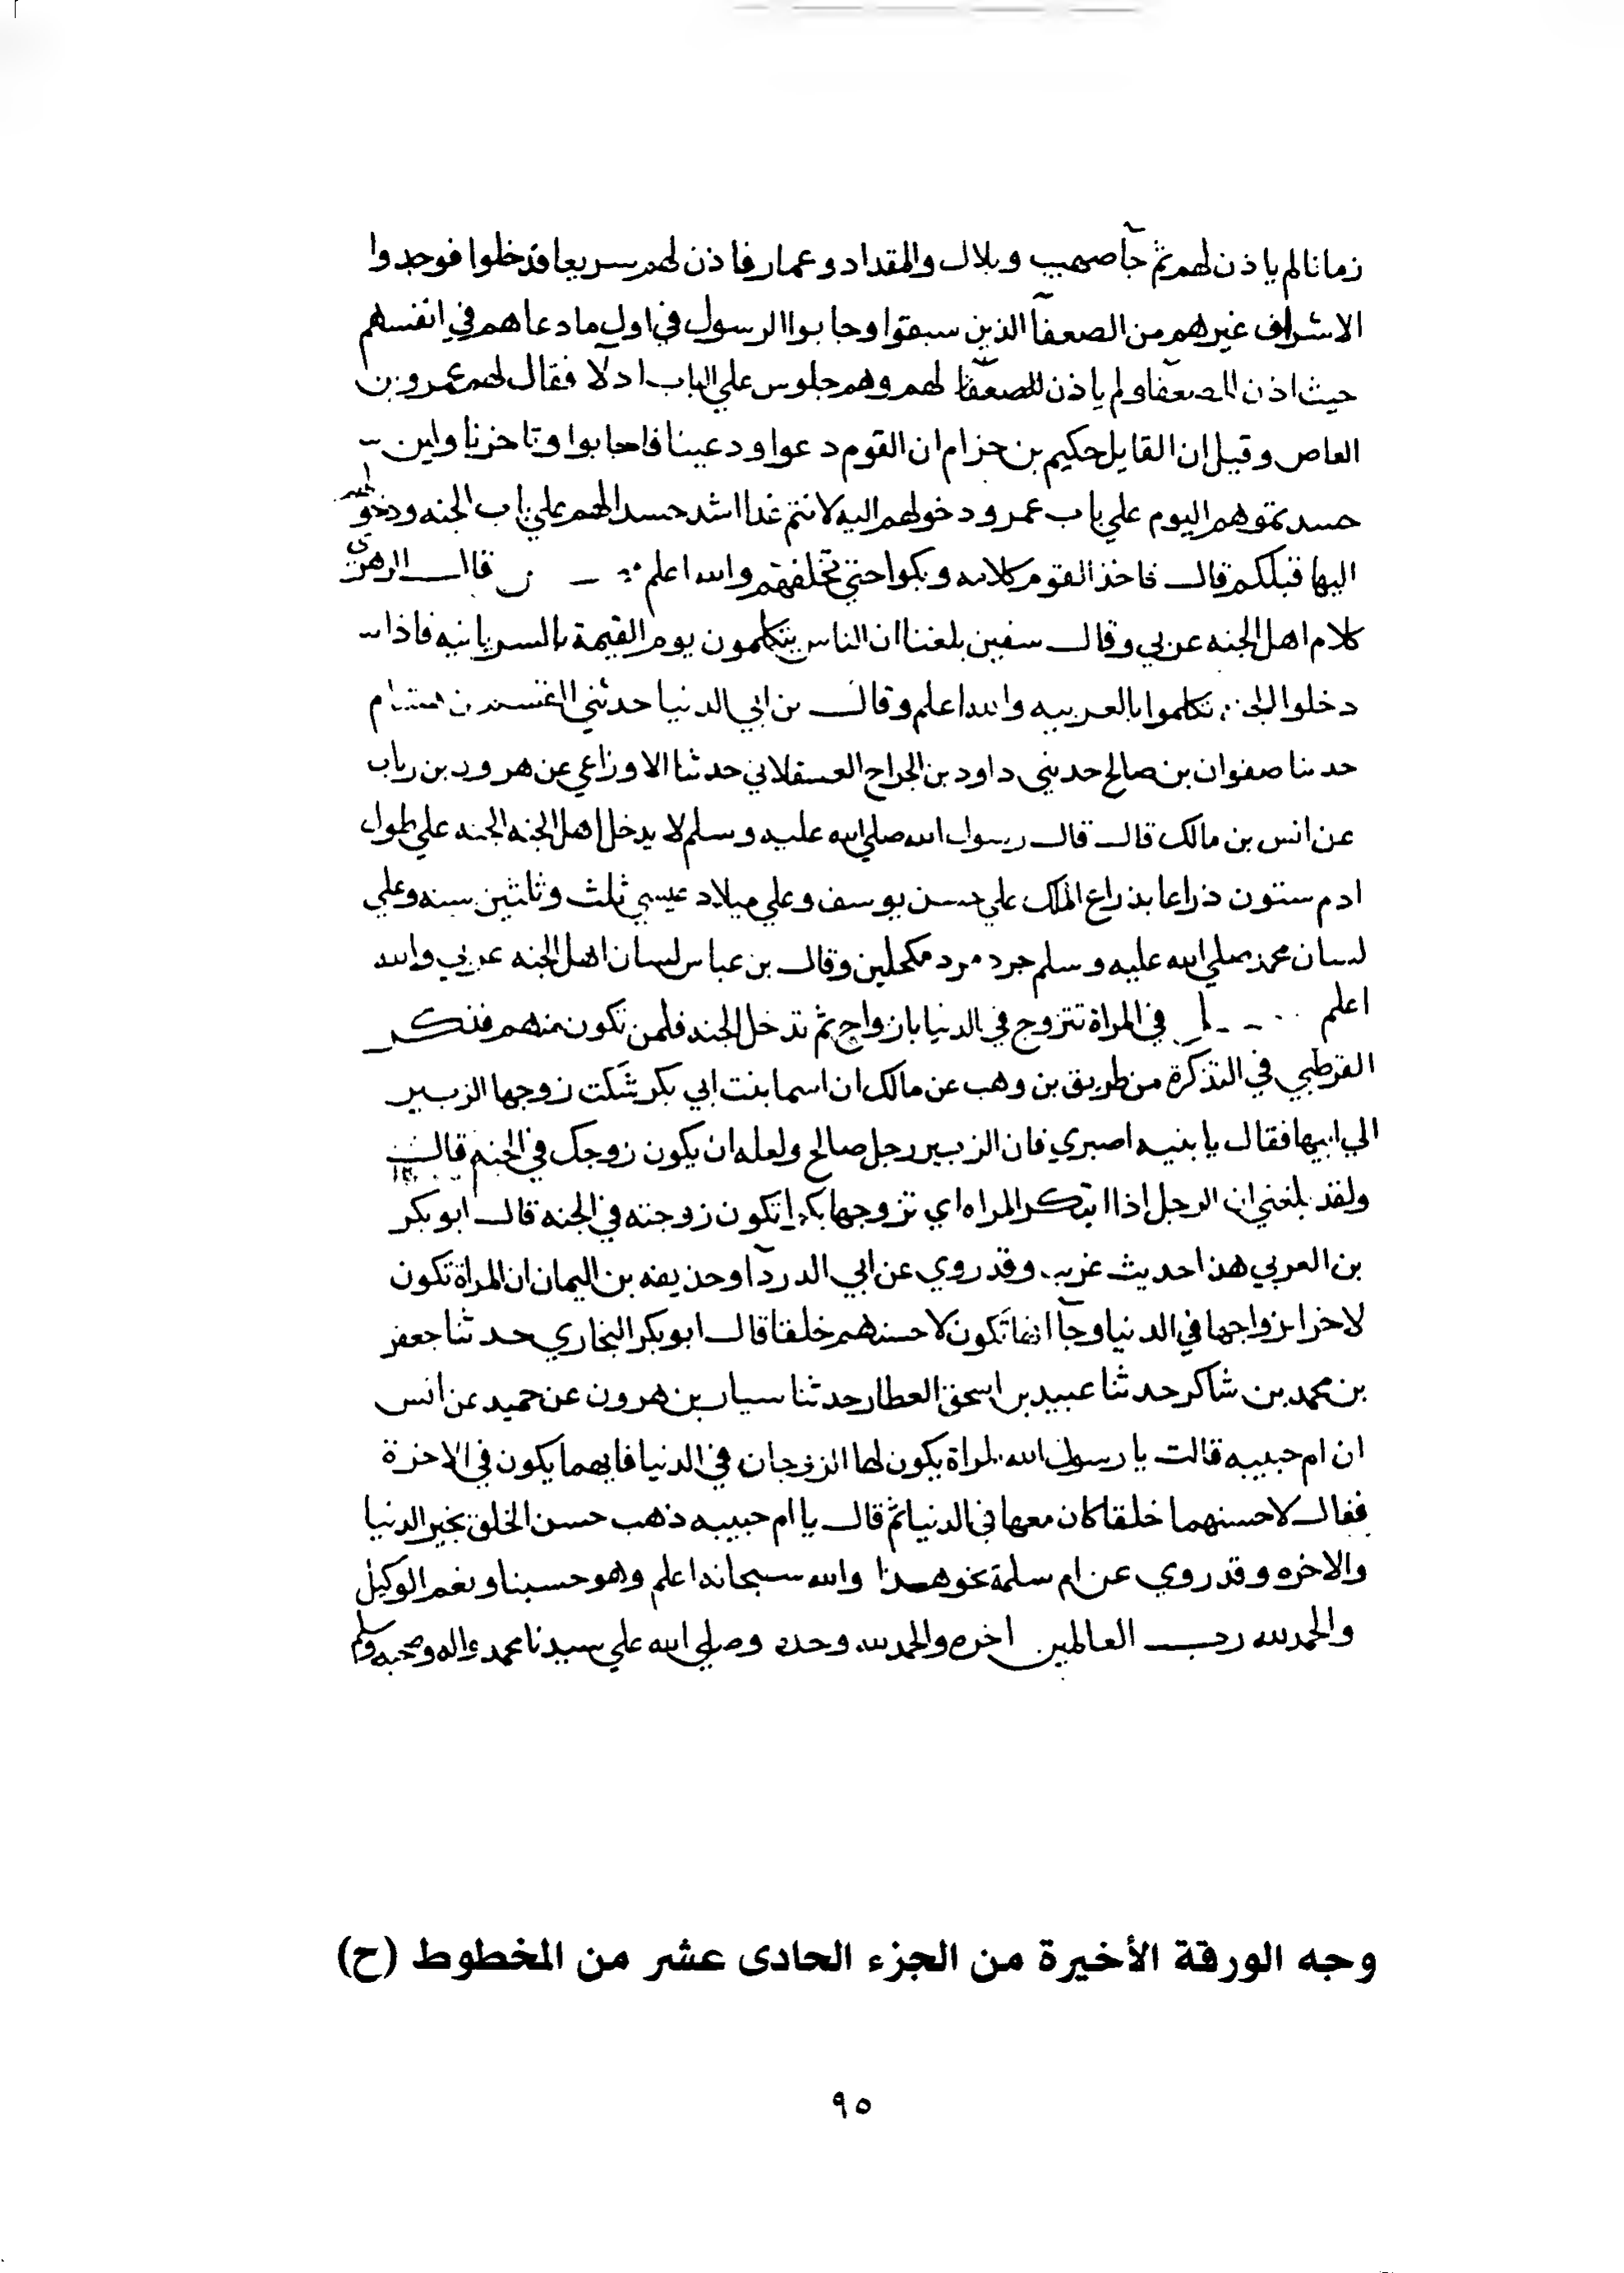 زمانا لم ياذن لهم ثم جآ صهيب وبلال والمقداد وعمار فاذن لهم سريعا فدخلوا فوجدوا
الاشراف غيرهم من الضعفآ الذين سبقوا وجابوا الرسول في اول ما دعاهم في انفسهم
حيث اذن للضعفآ ولم ياذن للضعفآ لهم وهم جلوس علي الباب اذلآ فقال لهم عمرو بن
العاص وقيل ان القايل حكيم بن حزام ان القوم دعوا ودعينا فاجابوا وتاخرنا ولين
حسدتموهم اليوم علي باب عمر ودخولهم اليه لانتم غدا اشد حسدا لهم علي باب الجنه ودخولهم
اليها قبلكم قال فاخذ القوم كلامه وبكوا حتي تخلفهم والله اعلم قال الزهري
كلام اهل الجنه عربي وقال سفين بلغنا ان الناس يتكلمون يوم القيمة بالسريانيه فاذا
دخلوا الجنه تكلموا بالعربيه والله اعلم وقال بن ابي الدنيا حدثني القسم بن هشام
حدثنا صفوان بن صالح حدثني داود بن الجراح العسقلاني حدثنا الاوزاعي عن هرون بن رياب
عن انس بن مالك قال قال رسول الله صلي الله عليه وسلم لا يدخل اهل الجنه الجنه علي طول
ادم ستون ذراعا بذراع الملك علي حسن يوسف وعلي ميلاد عيسي ثلث وثلثين سنه وعلي
لسان محمد صلي الله عليه وسلم جرد مرد مكحلين وقال بن عباس لسان اهل الجنه عربي والله
اعلم في المراة تتزوج في الدنيا بازواج ثم تدخل الجنه فلمن تكون منهم فذكر
القرطبي في التذكرة من طريق بن وهب عن مالك ان اسما بنت ابي بكر شكت زوجها الزبير
الي ابيها فقال يا بنيه اصبري فان الزبير رجل صالح ولعله ان يكون زوجك في الجنه قال
ولقد بلغني ان الرجل اذا ابتكر المراه اي تزوجها بكرا تكون زوجته في الجنه قال ابو بكر
بن العربي هذا حديث غريب وقد روي عن ابي الدردآ وحذيفه بن اليمان ان المراة تكون
لاخر ازواجها في الدنيا وجآ انها تكون لاحسنهم خلقا قال ابو بكر النجاري حدثنا جعفر
بن محمد بن شاكر حدثنا عبيد بن اسحق العطار حدثنا سيار بن هرون عن حميد عن انس
ان ام حبيبه قالت يا رسول الله المراة يكون لها الزوجان في الدنيا فايهما يكون في الاخرة
فقال لاحسنهما خلقا كان معها في الدنيا ثم قال يا ام حبيبه ذهب حسن الخلق بخير الدنيا
والاخره وقد روي عن ام سلمة نحو هذا والله سبحانه اعلم وهو حسبنا ونعم الوكيل
والحمد لله رب العالمين اخره والحمد لله وحده وصلي الله علي سيدنا محمد واله وصحبه وسلم
وجه الورقة الأخيرة من الجزء الحادى عشر من المخطوط (ح)
٩٥